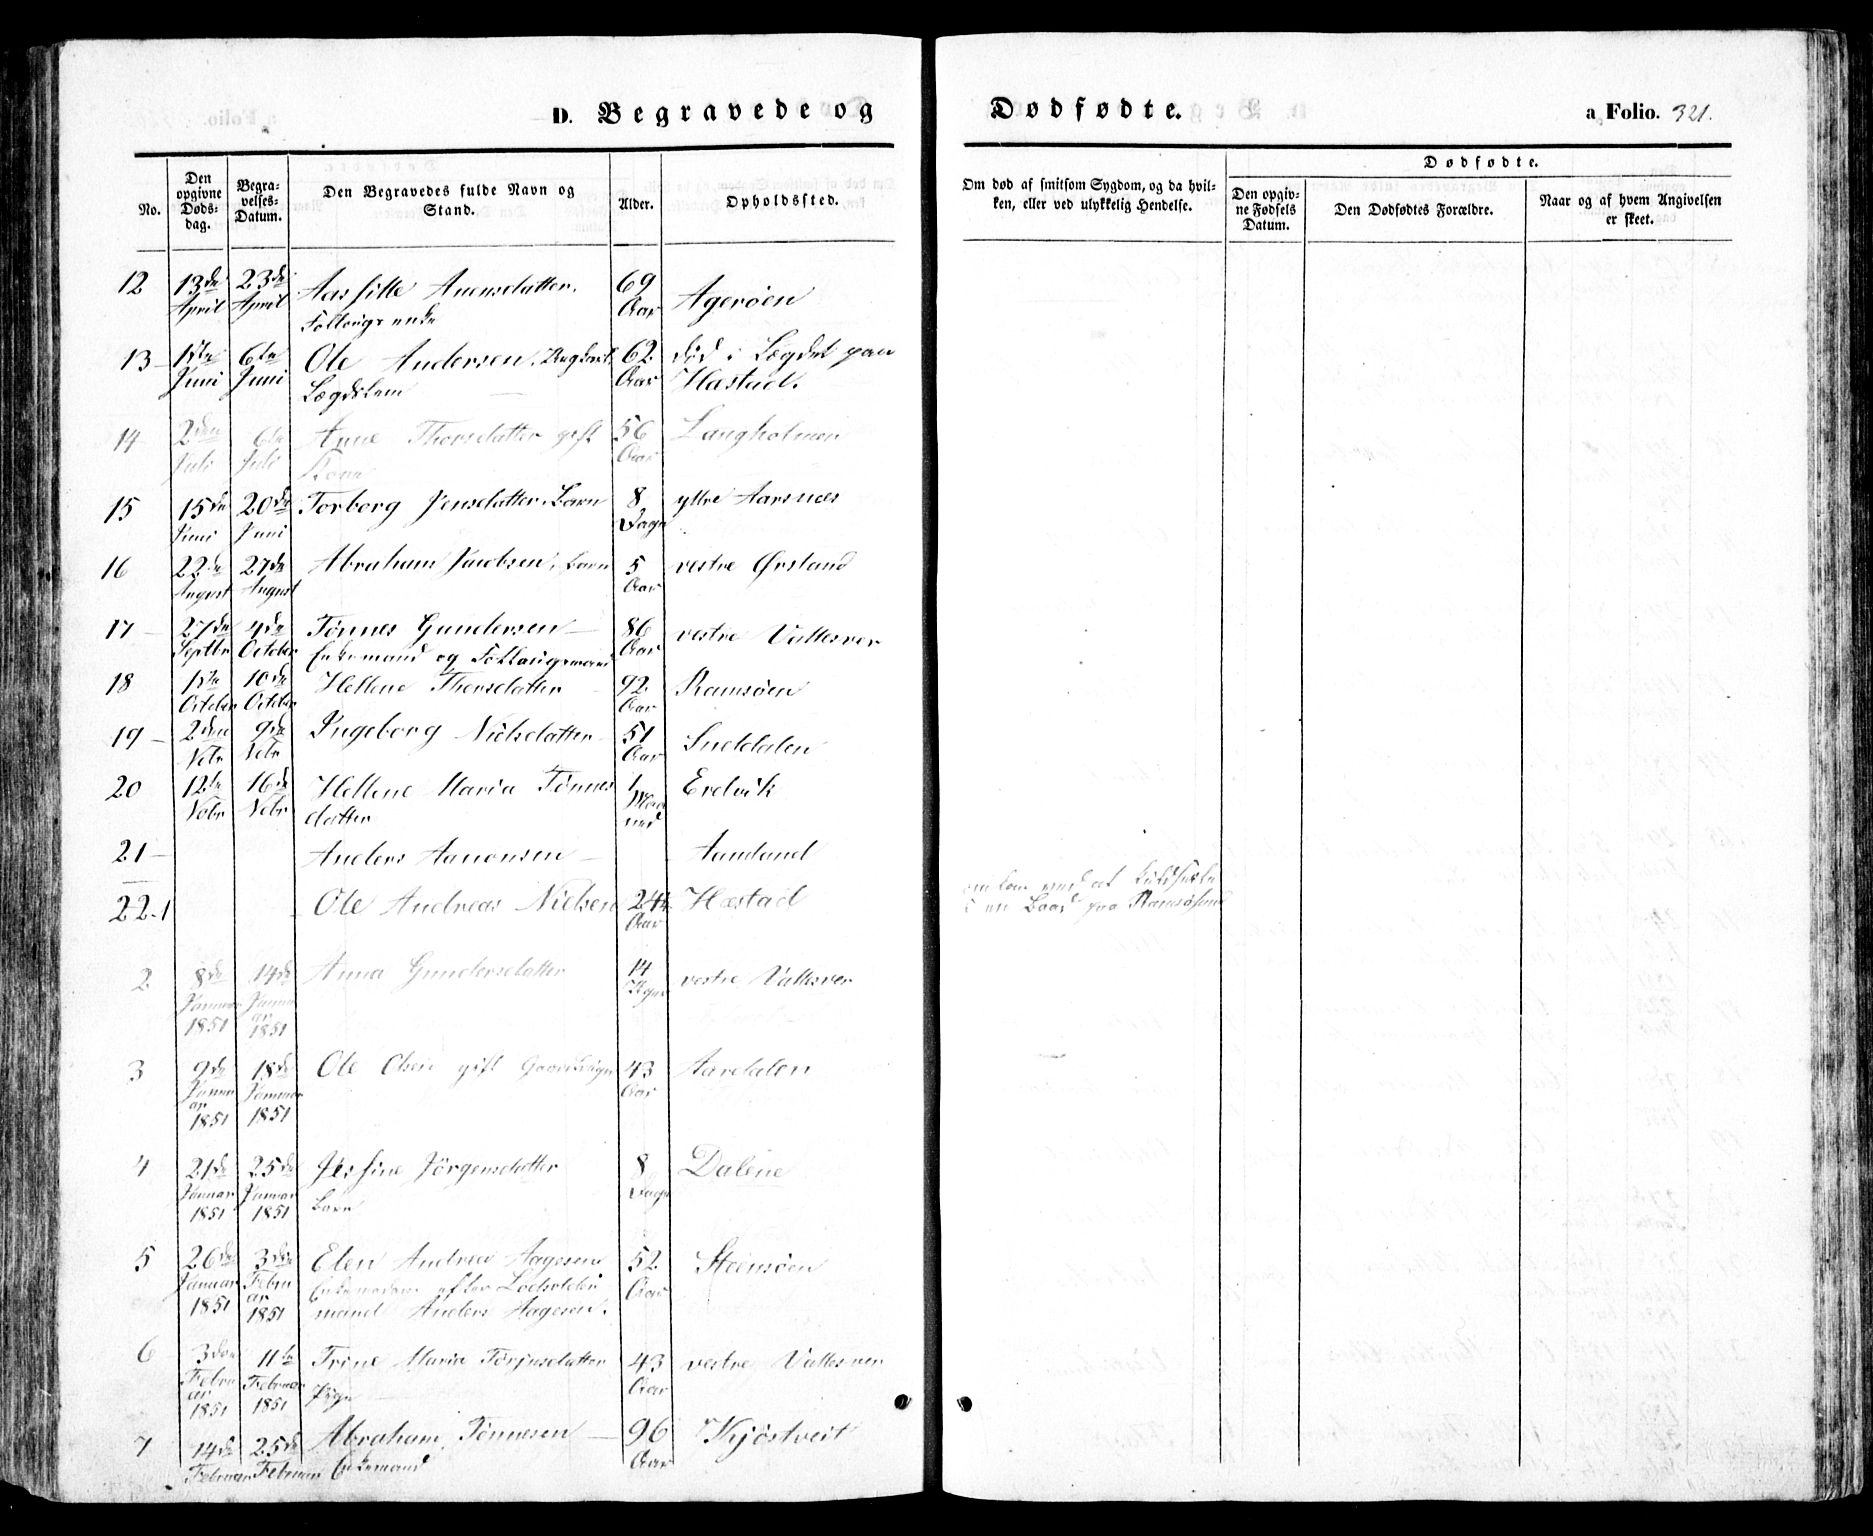 D. Begravede og Dødfødte. a Folio. 321.
No.
Den opgivne Døds-dag.
Begra-velses-Datum.
Den Begravedes fulde Navn og Stand.
Alder.
Opholdssted.
Om død af smitsom Sygdom, og da hvil-ken, eller ved ulykkelig Hendelse.
Dødfødte.
Den opgiv-ne Fødsels Datum.
Den Dødfødtes Forældre.
Naar og af hvem Angivelsen er skeet.
12 13de 23de 69 Agerøen
April April Aar
13 1ste 6te Ole Andersen 62 død i Lægdet paa
Juni Juni Lægdslem Aar Hæstad.
14 2den 6te Anne Thorsdatter gift 56 Langholmen
Juli Juli Kone Aar
15 15de 20de Torborg Jensdatter. Barn 8 yttre Aarsnæs
Juni Juni Dage
16 22de 27de Abraham Jacobsen, Barn 5 vestre Ørsland
August August Aar
17 27de 4de Tønnes Gundersen 86 vestre Vallesver
Septbr October Enkemand og Føllaugsmand Aar
18 1ste 10de Hellene Thorsdatter 92 Ramsøen
October October Aar
19 2den 9de Ingeborg Nielsdatter 51
Nvbr Nvbr Aar
20 12te 16de Hellene Maria Tønnes 1 Eredvik
Nvbr Nvbr datter Maaned
21 Anders Aanonsen Aamland
22. 1 Ole Andreas Nielsen 24 Hæstad omkom ved at kuldseile
Aar i en Baad paa Ramsøsund
2 8de 14de Anna Gundersdatter 14 vestre Vallesver
Januar Januar Dage
1851 1851
3 9de 18de Ole Olsen gift 43 Aaredalen
Januar Januar Aar
1851 1851
4 21de 25de Jensine Jørgensdatter 8 Dalene
Januar Januar Barn Dage
1851 1851
5 26de 3die Elen Andrea Aagesen 52 Steensøen
Januar Februar Enkemadam efter Aar
1851 1851 mand Anders Aagesen.
6 3den 11te Trine Maria Terjusdatter 43 vestre Vallesver
Februar Februar Pige Aar
1851 1851
7 14de 25de Abraham Tønnesen 96 Kjøstveit
Februar Februar Enkemand Aar